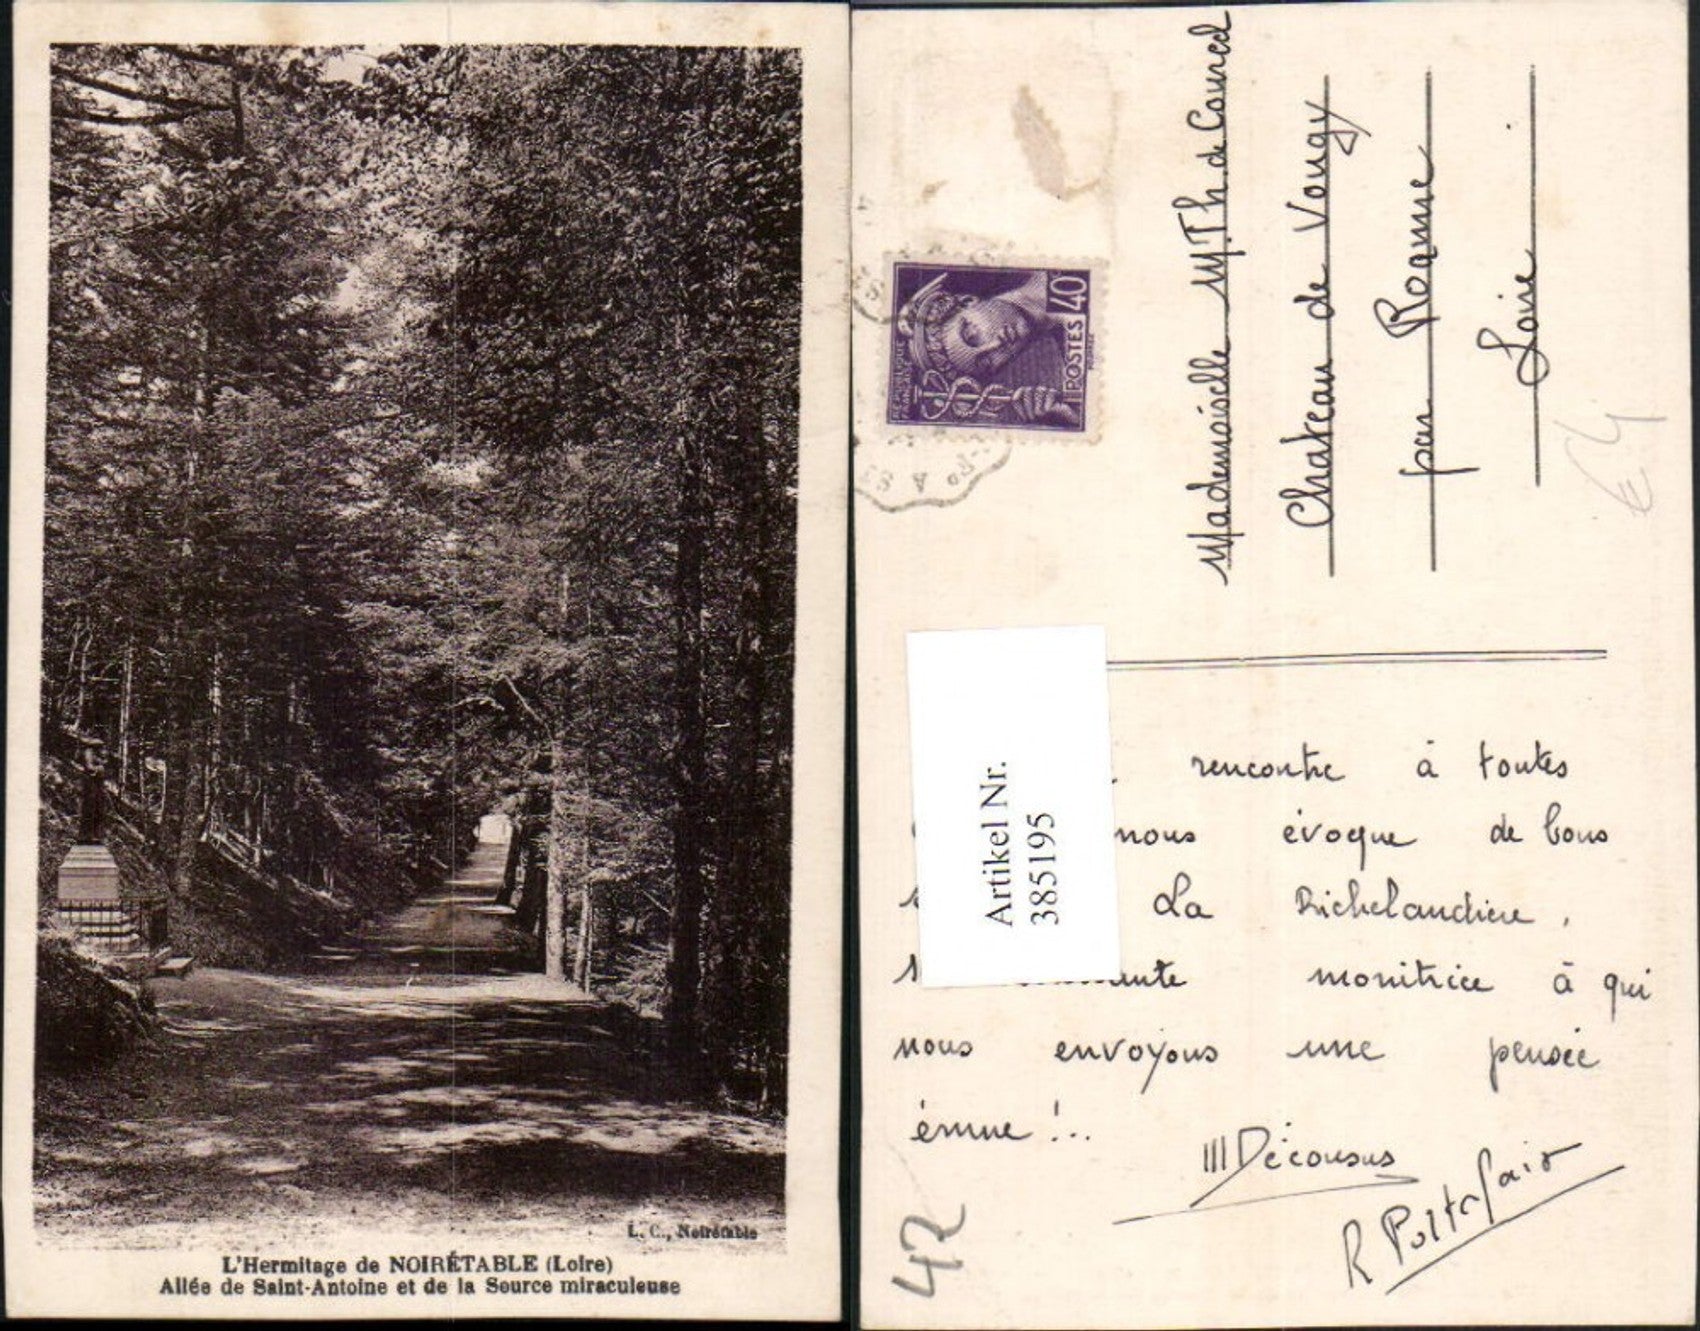 L. C., Noirétable
L'Hermitage de NOIRÉTABLE (Loire)
Allée de Saint-Antoine et de la Source miraculeuse
RÉPUBLIQUE
FRANÇAISE
40c
POSTES
Mademoiselle M.Th. de
Chateau de Vougy
par Roanne
Loire
€4
Artikel Nr.
385195
rencontre à toutes
nous évoque de bons
La Richelandière,
monitrice à qui
nous envoyons une pensée
émue !..
Décousus
R Portefaix
42